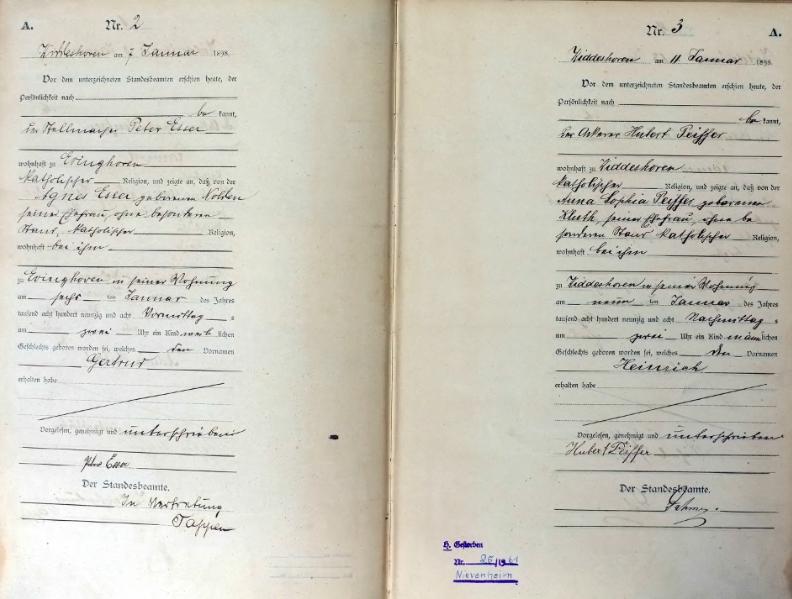 A.
Nr. 2
am 7 Januar 1898.
Vor dem unterzeichneten Standesbeamten erschien heute, der
Persönlichkeit nach
be kannt,
der Stellmacher Peter Esser
wohnhaft zu Evinghoven
katholischer Religion, und zeigte an, daß von der
Agnes Esser geborenen Nolden
seiner Ehefrau, ohne besonderen
Stand, katholischer Religion,
wohnhaft bei ihm
zu Evinghoven in seiner Wohnung
am sechs ten Januar des Jahres
tausend acht hundert neunzig und acht Vormittag s
um zwei Uhr ein Kind weib lichen
Geschlechts geboren worden sei, welches den Vornamen
Gertrud
erhalten habe
Vorgelesen, genehmigt und unterschrieben
Peter Esser
Der Standesbeamte.
In Vertretung
Tappen
Nr. 3
A.
Widdeshoven am 11 Januar 1898.
Vor dem unterzeichneten Standesbeamten erschien heute, der
Persönlichkeit nach
be kannt,
der Ackerer Hubert Peiffer
wohnhaft zu Widdeshoven
katholischer Religion, und zeigte an, daß von der
Anna Sophia Peiffer geborenen
Kluth, seiner Ehefrau, ohne be
sonderen Stand katholischer Religion,
wohnhaft bei ihm
zu Widdeshoven in seiner Wohnung
am neun ten Januar des Jahres
tausend acht hundert neunzig und acht Nachmittag s
um zwei Uhr ein Kind männlichen
Geschlechts geboren worden sei, welches den Vornamen
Heinrich
erhalten habe
Vorgelesen, genehmigt und unterschrieben
Hubert Peiffer
Der Standesbeamte.
H. Gestorben
Nr. 25/1961
Nievenheim